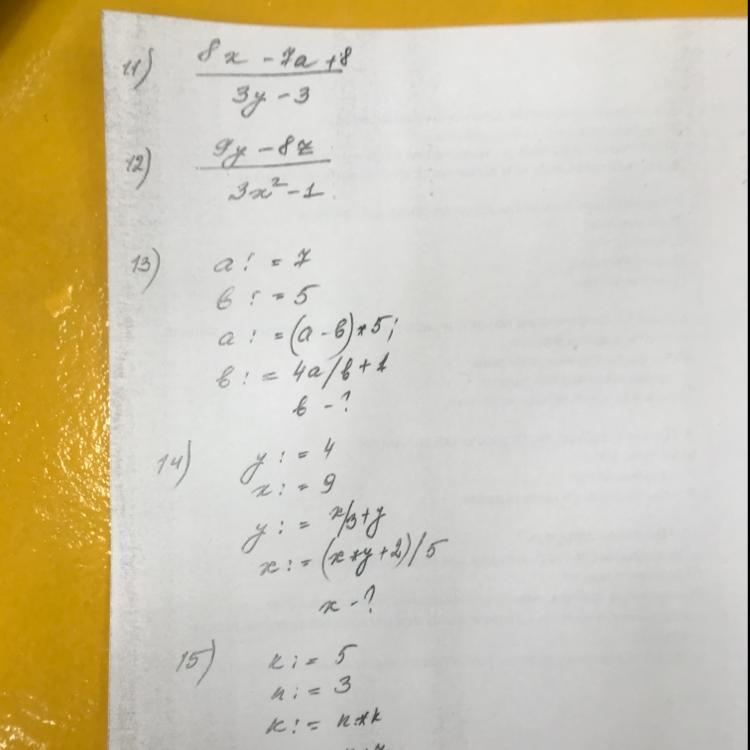 11) 8x - 7a + 8
3y - 3
12) 9y - 8z
3x² - 1
13) a := 7
в := 5
a := (a - в) * 5;
в := 4a/в + 1
в - ?
14) y := 4
x := 9
y := x/3 + y
x := (x * y + 2) / 5
x - ?
15) к := 5
n := 3
к := n * к